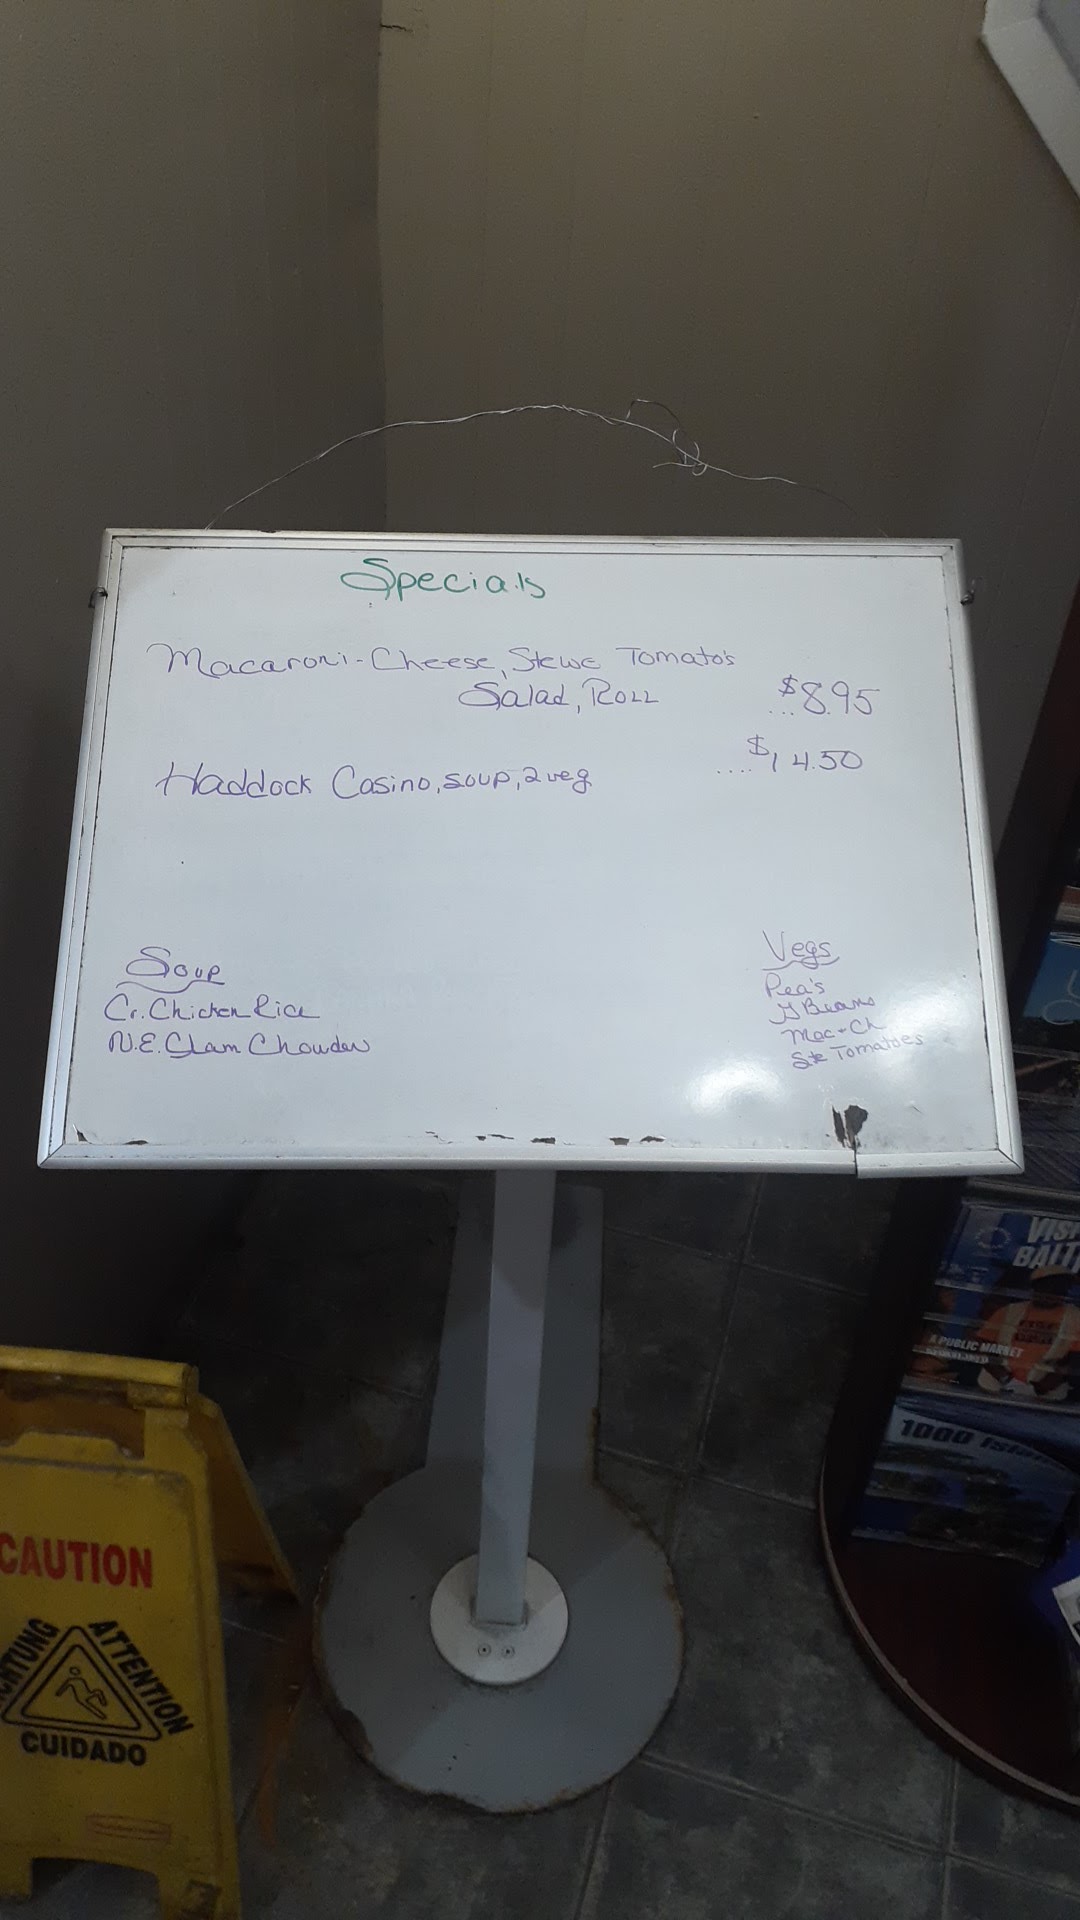 Specials
Macaroni-Cheese, Stewe Tomato's
Salad, Roll
$8.95
Haddock Casino, soup, 2 veg
.... $14.50
Soup
Cr. Chicken Rice
N.E. Clam Chowder
Vegs
Pea's
G Beans
Mac + Ch
Ste Tomatoes
VISI
BALTI
A PUBLIC MARKET
1000 Isla
CAUTION
ATTENTION
CUIDADO